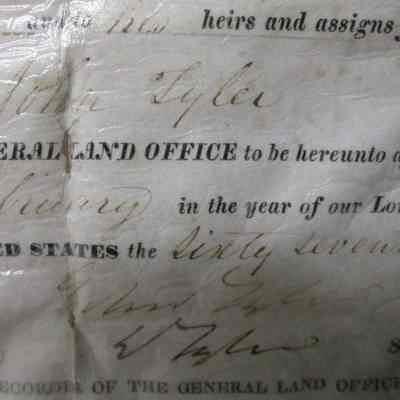 and to his heirs and assigns
John Tyler
ERAL LAND OFFICE to be hereunto a
bruary in the year of our Lo
ED STATES the Sixty Seven
John Tyler
Tyler S
ECORDER OF THE GENERAL LAND OFFICE